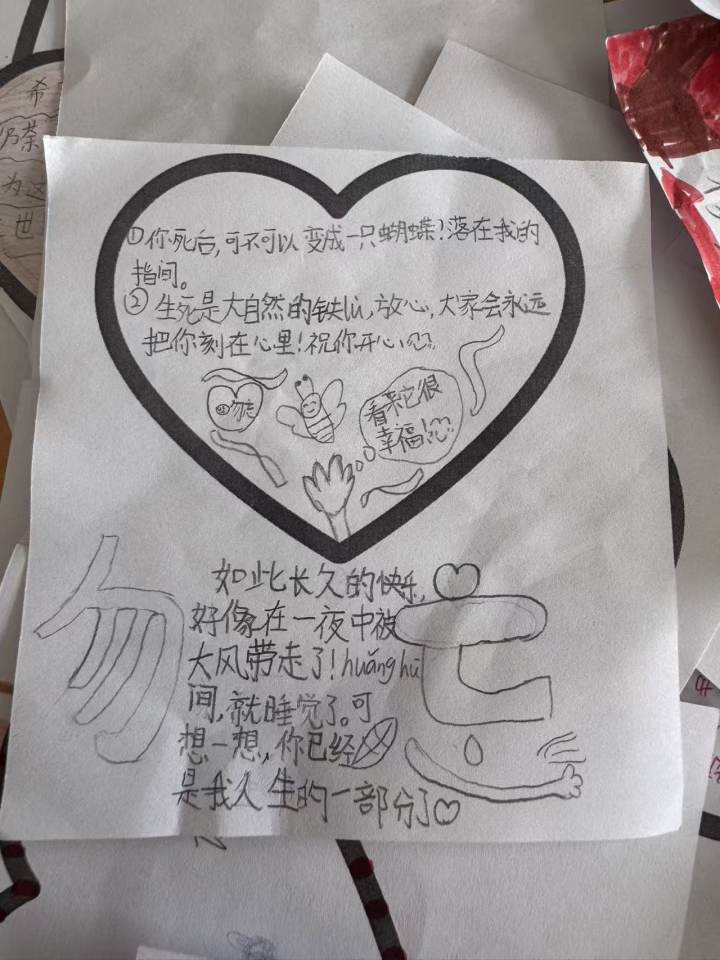 希
为这
世
①你死后,可不可以变成一只蝴蝶?落在我的
指间。
②生死是大自然的铁lǜ,放心,大家会永远
把你刻在心里!祝你开心
勿忘
看来它很
幸福!
勿忘
如此长久的快乐,
好像在一夜中被
大风带走了!huǎng hū
间,就睡觉了。可
想一想,你已经
是我人生的一部分了